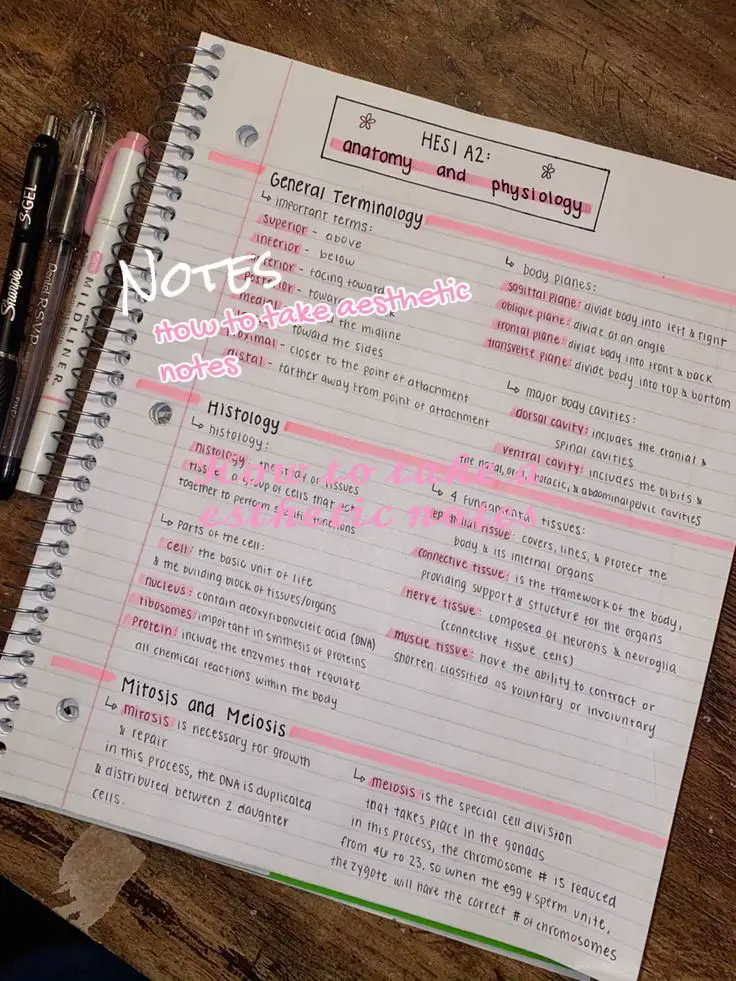 HESI A2:
anatomy and physiology
General Terminology
↳ important terms:
superior - above
inferior - below
anterior - facing toward
posterior - toward
medial the midline
toward the sides
proximal - closer to the point of attachment
distal - farther away from point of attachment
↳ body planes:
sagittal plane: divide body into left & right
oblique plane: divide at an angle
frontal plane: divide body into front & back
transverse plane: divide body into top & bottom
↳ major body cavities:
dorsal cavity: includes the cranial &
spinal cavities
ventral cavity: includes the orbits &
the nasal, oral, thoracic, & abdominalpelvic cavities
NOTES
How to take aesthetic
notes
Histology
↳ histology:
histology: study of tissues
tissue: a group of cells that act
together to perform specific functions
↳ parts of the cell:
cell: the basic unit of life
& the building block of tissues/organs
nucleus: contain deoxyribonucleic acid (DNA)
ribosomes: important in synthesis of proteins
protein: include the enzymes that regulate
all chemical reactions within the body
How to take a
esthetic notes
↳ 4 fundamental tissues:
epithelial tissue: covers, lines, & protect the
body & its internal organs
connective tissue: is the framework of the body,
providing support & structure for the organs
nerve tissue: composed of neurons & neuroglia
(connective tissue cells)
muscle tissue: have the ability to contract or
shorten. classified as voluntary or involuntary
Mitosis and Meiosis
↳ mitosis is necessary for growth
& repair
in this process, the DNA is duplicated
& distributed between 2 daughter
cells.
↳ meiosis is the special cell division
that takes place in the gonads
in this process, the chromosome # is reduced
from 46 to 23, so when the egg & sperm unite,
the zygote will have the correct # of chromosomes
Sharpie S·GEL
Pentel R.S.V.P.
FINE
MILDLINER